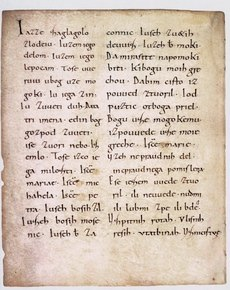 Iazze zaglagolo
zlodeiu. Iuzem iego
delom. Iuzem iego
lepocam. Tose uue
ruiu u bog uze mo
goki. Iu iega zin.
Iu zuueti duh. Da ta
tri imena. edin bog
gozpod zuueti.
ise zuori nebo Ize
mlo. Tose izco ie
ga milozti. Isce
mariae. Isce mi
hahela. Isce pe
tra. Iuseh bosih zil
Iuzeh bosih mose
nic. Iuseh b za
connic. Iuseh zuetih
devuiz. Iuzeh b moki
Da mi rasite na pomoki
biti. kibogu moih gre
chou. Dabim cisto iz
pouued ztuoril. Iod
puztic otboga priel.
Bogu uze mogokemu
izpouuede vuze moie
greche. Isce marie.
Uzeh nepraudnih del.
inepraudnega pomislena
Ese iesem uuede ztuo
ril. ili neuuede. nudm
ili lubmi zpe ili bde.
Uzpitnih rotah. Vlisnih
resih. vtatbinah. Vznicistve